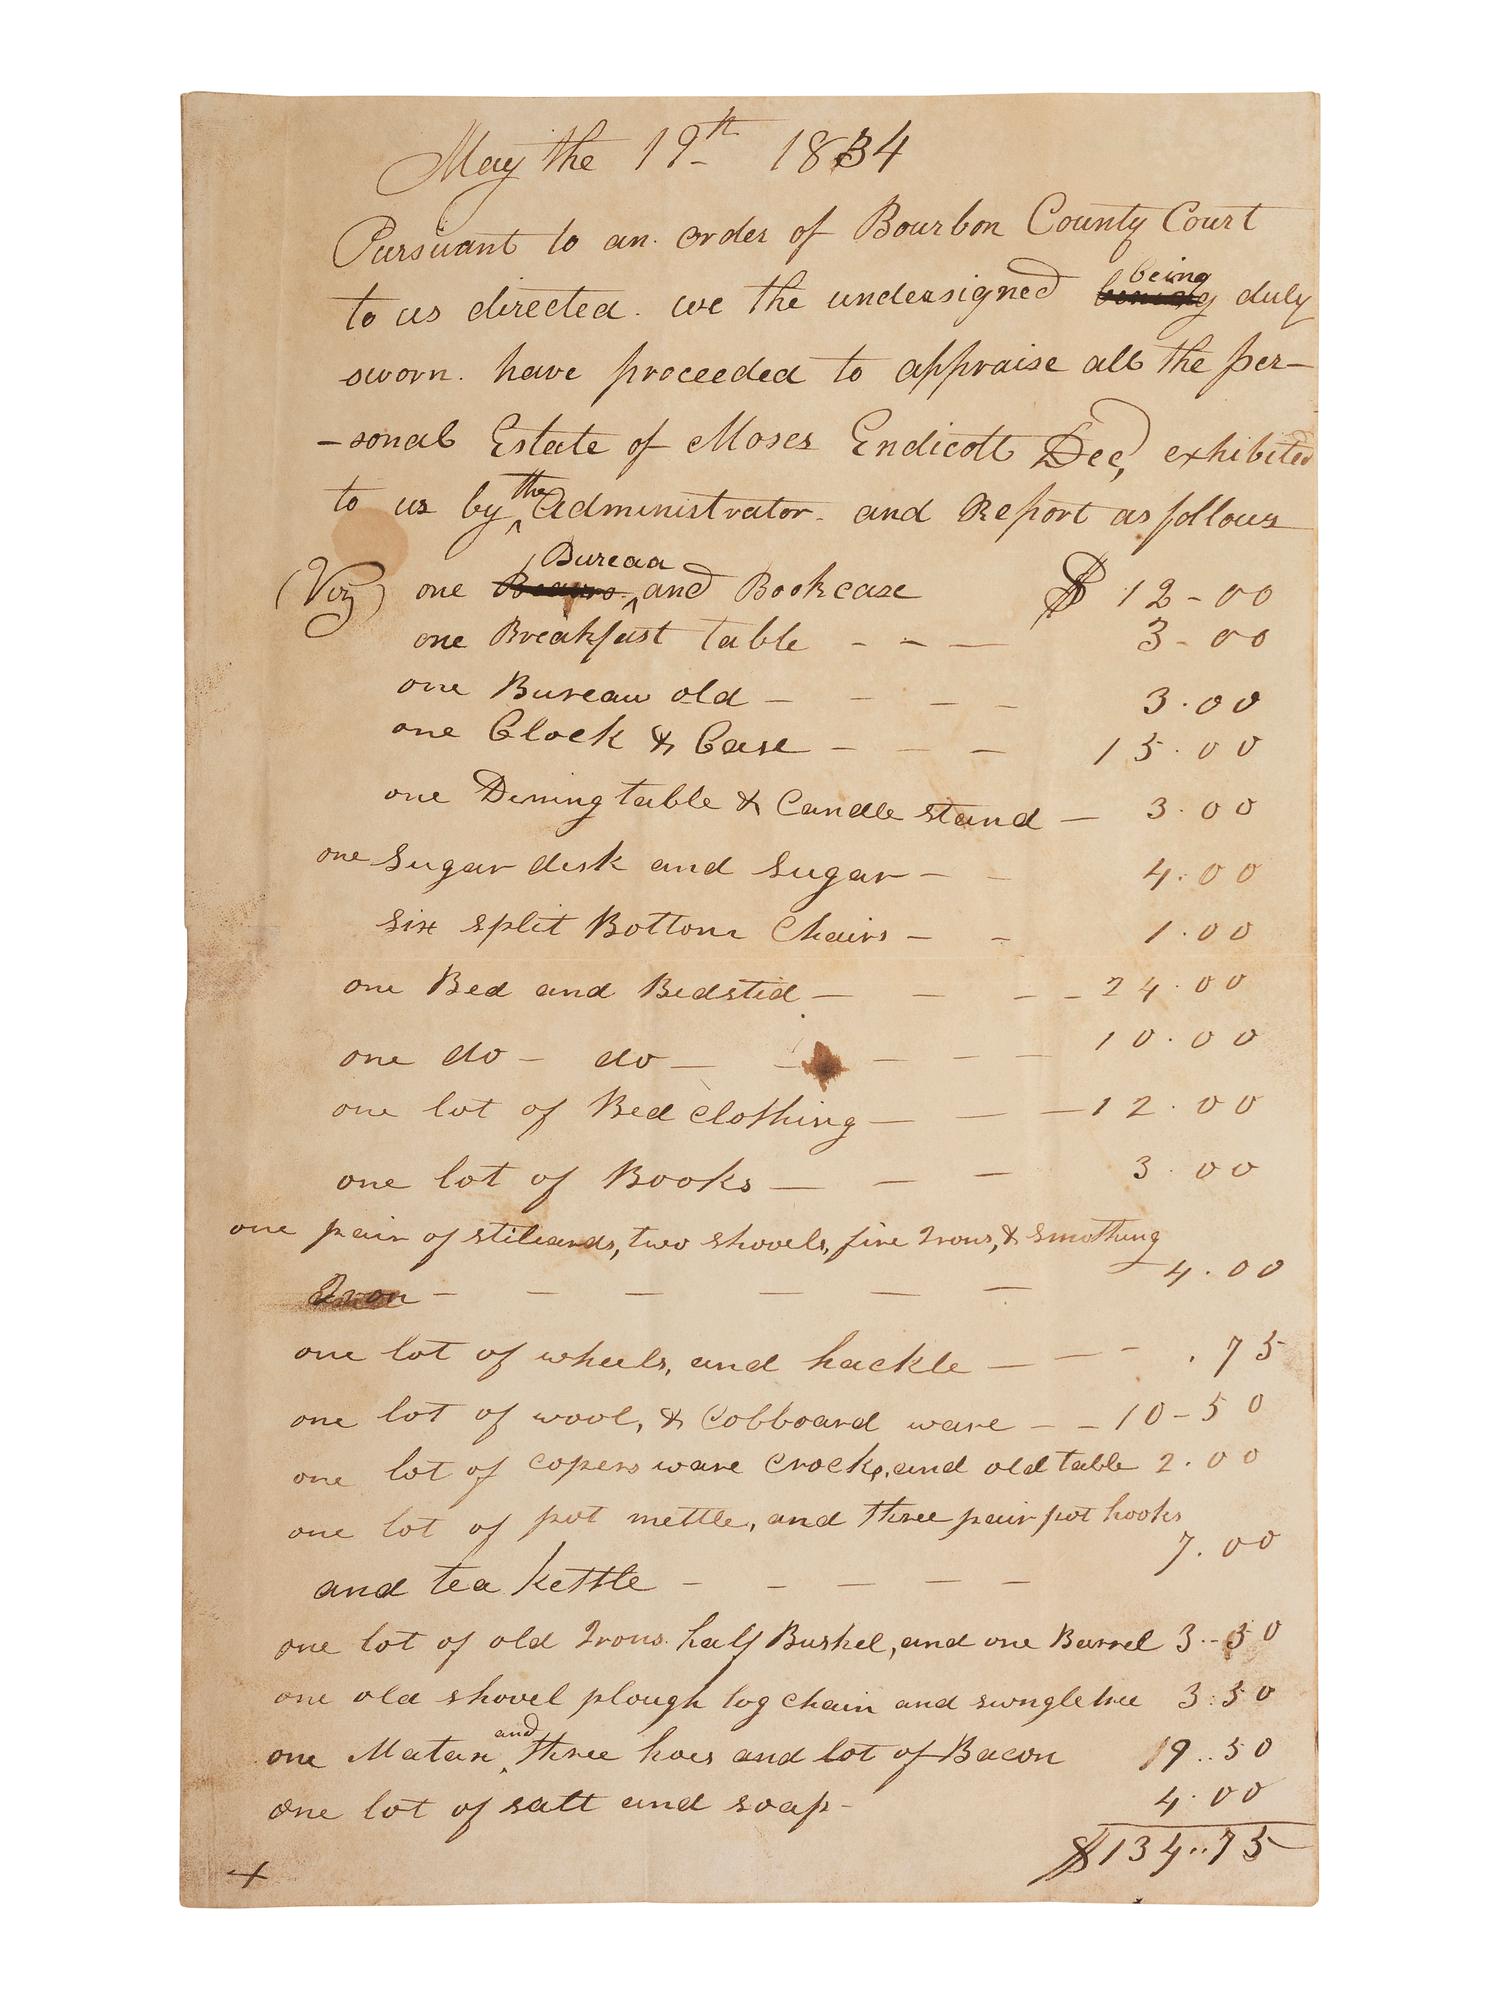 May the 19th 1834
Pursuant to an order of Bourbon County Court
being
to us directed. we the undersigned duly
sworn. have proceeded to appraise all the per-
-sonal Estate of Moses Endicott Decd, exhibited
the
to us by ^ Administrator. and Report as follows
Bureaa
(Viz) one ^ and Bookcase $ 12-00
one Breakfast table - - - 3-00
one Bureau old - - - - 3.00
one Clock & Case - - - 15.00
one Dining table & Candle stand - 3.00
one Sugar desk and Sugar - - 4.00
six split Bottom Chairs - - 1.00
one Bed and Bedstid - - - - 24.00
one do - do - - - - - 10.00
one lot of Bed clothing - - - 12.00
one lot of Books - - - 3.00
one pair of stiliards, two shovels, fire Irons, & smothing
Iron - - - - - - - 4.00
one lot of wheels, and hackle - - - .75
one lot of wool, & Cobboard ware - - 10-50
one lot of copers ware Crocks, and old table 2.00
one lot of pot mettle, and three pair pot hooks
7.00
and tea kettle - - - - -
one lot of old Irons. half Bushel, and one Barrel 3--50
one old shovel plough log chain and swngletree 3:50
and
one Matax ^ three hoes and lot of Bacon 19..50
one lot of salt and soap - 4.00
$134..75
+